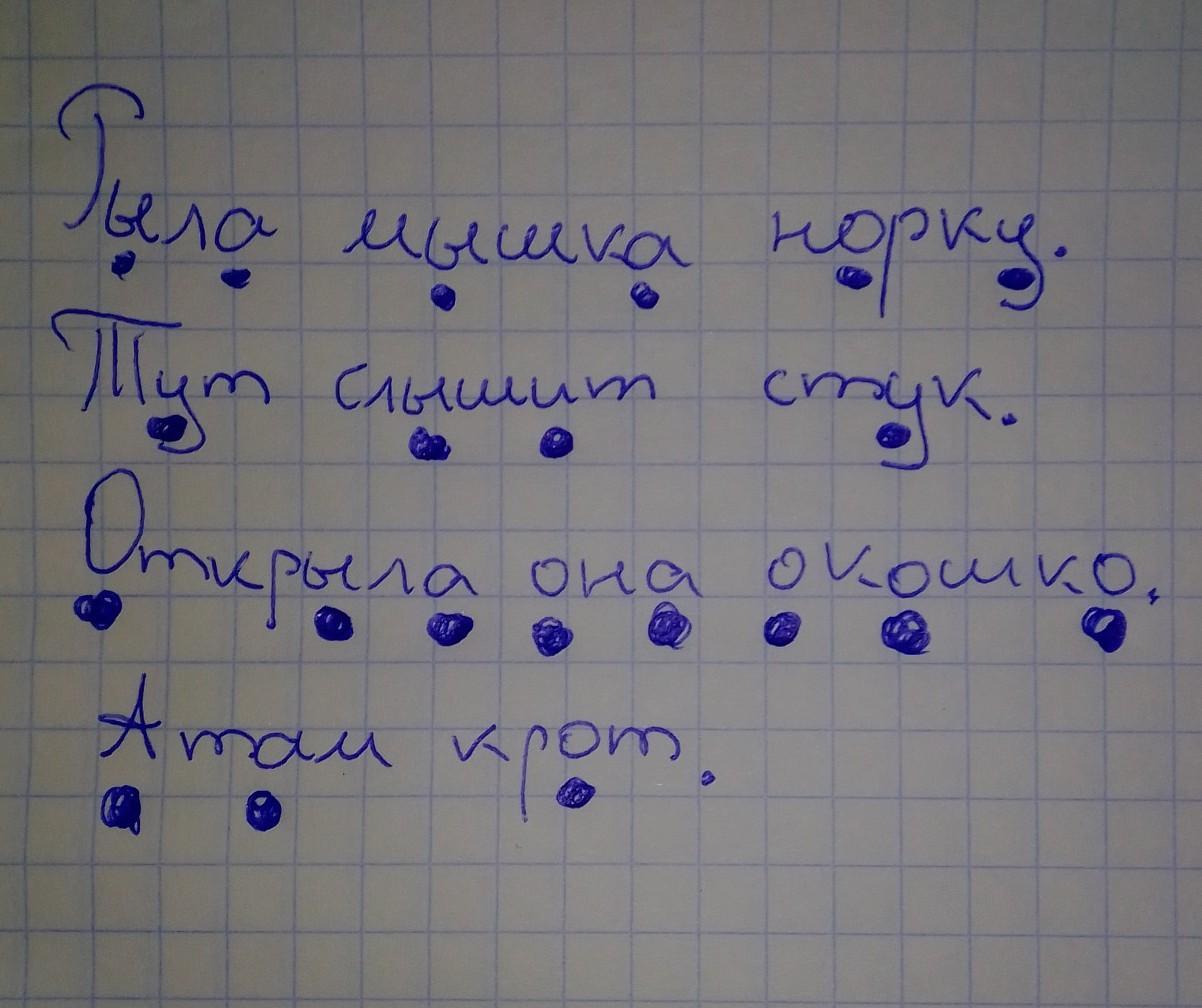 Рыла мышка норку.
Тут слышит стук.
Открыла она окошко.
А там крот.